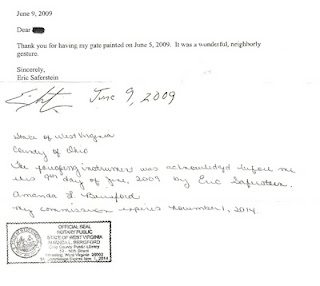 June 9, 2009
Dear
Thank you for having my gate painted on June 5, 2009. It was a wonderful, neighborly
gesture.
Sincerely,
Eric Saferstein
June 9, 2009
State of West Virginia
County of Ohio
The foregoing instrument was acknowledged before me
this 9th day of June, 2009 by Eric Saferstein.
Amanda L. Bereford
My commission expires November 1, 2014.
OFFICIAL SEAL
NOTARY PUBLIC
STATE OF WEST VIRGINIA
AMANDA L. BEREFORD
Ohio County Public Library
52 - 16th Street
Wheeling, West Virginia 26003
My Commission Expires Nov. 1, 2014